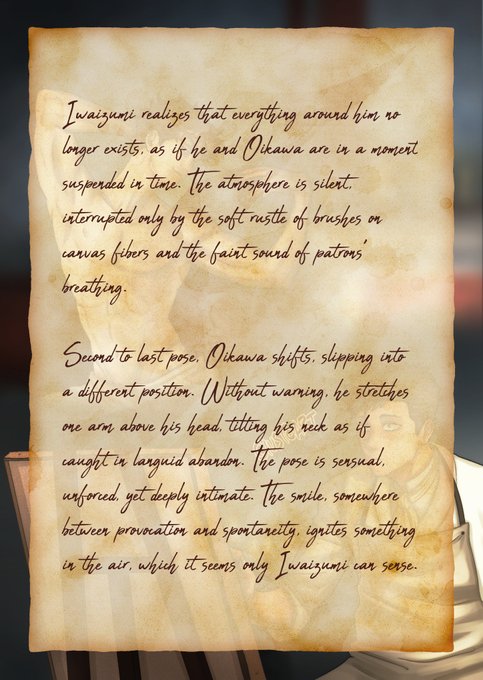 Iwaizumi realizes that everything around him no
longer exists, as if he and Oikawa are in a moment
suspended in time. The atmosphere is silent,
interrupted only by the soft rustle of brushes on
canvas fibers and the faint sound of patrons'
breathing.
Second to last pose, Oikawa shifts, slipping into
a different position. Without warning, he stretches
one arm above his head, tilting his neck as if
caught in languid abandon. The pose is sensual,
unforced, yet deeply intimate. The smile, somewhere
between provocation and spontaneity, ignites something
in the air, which it seems only Iwaizumi can sense.